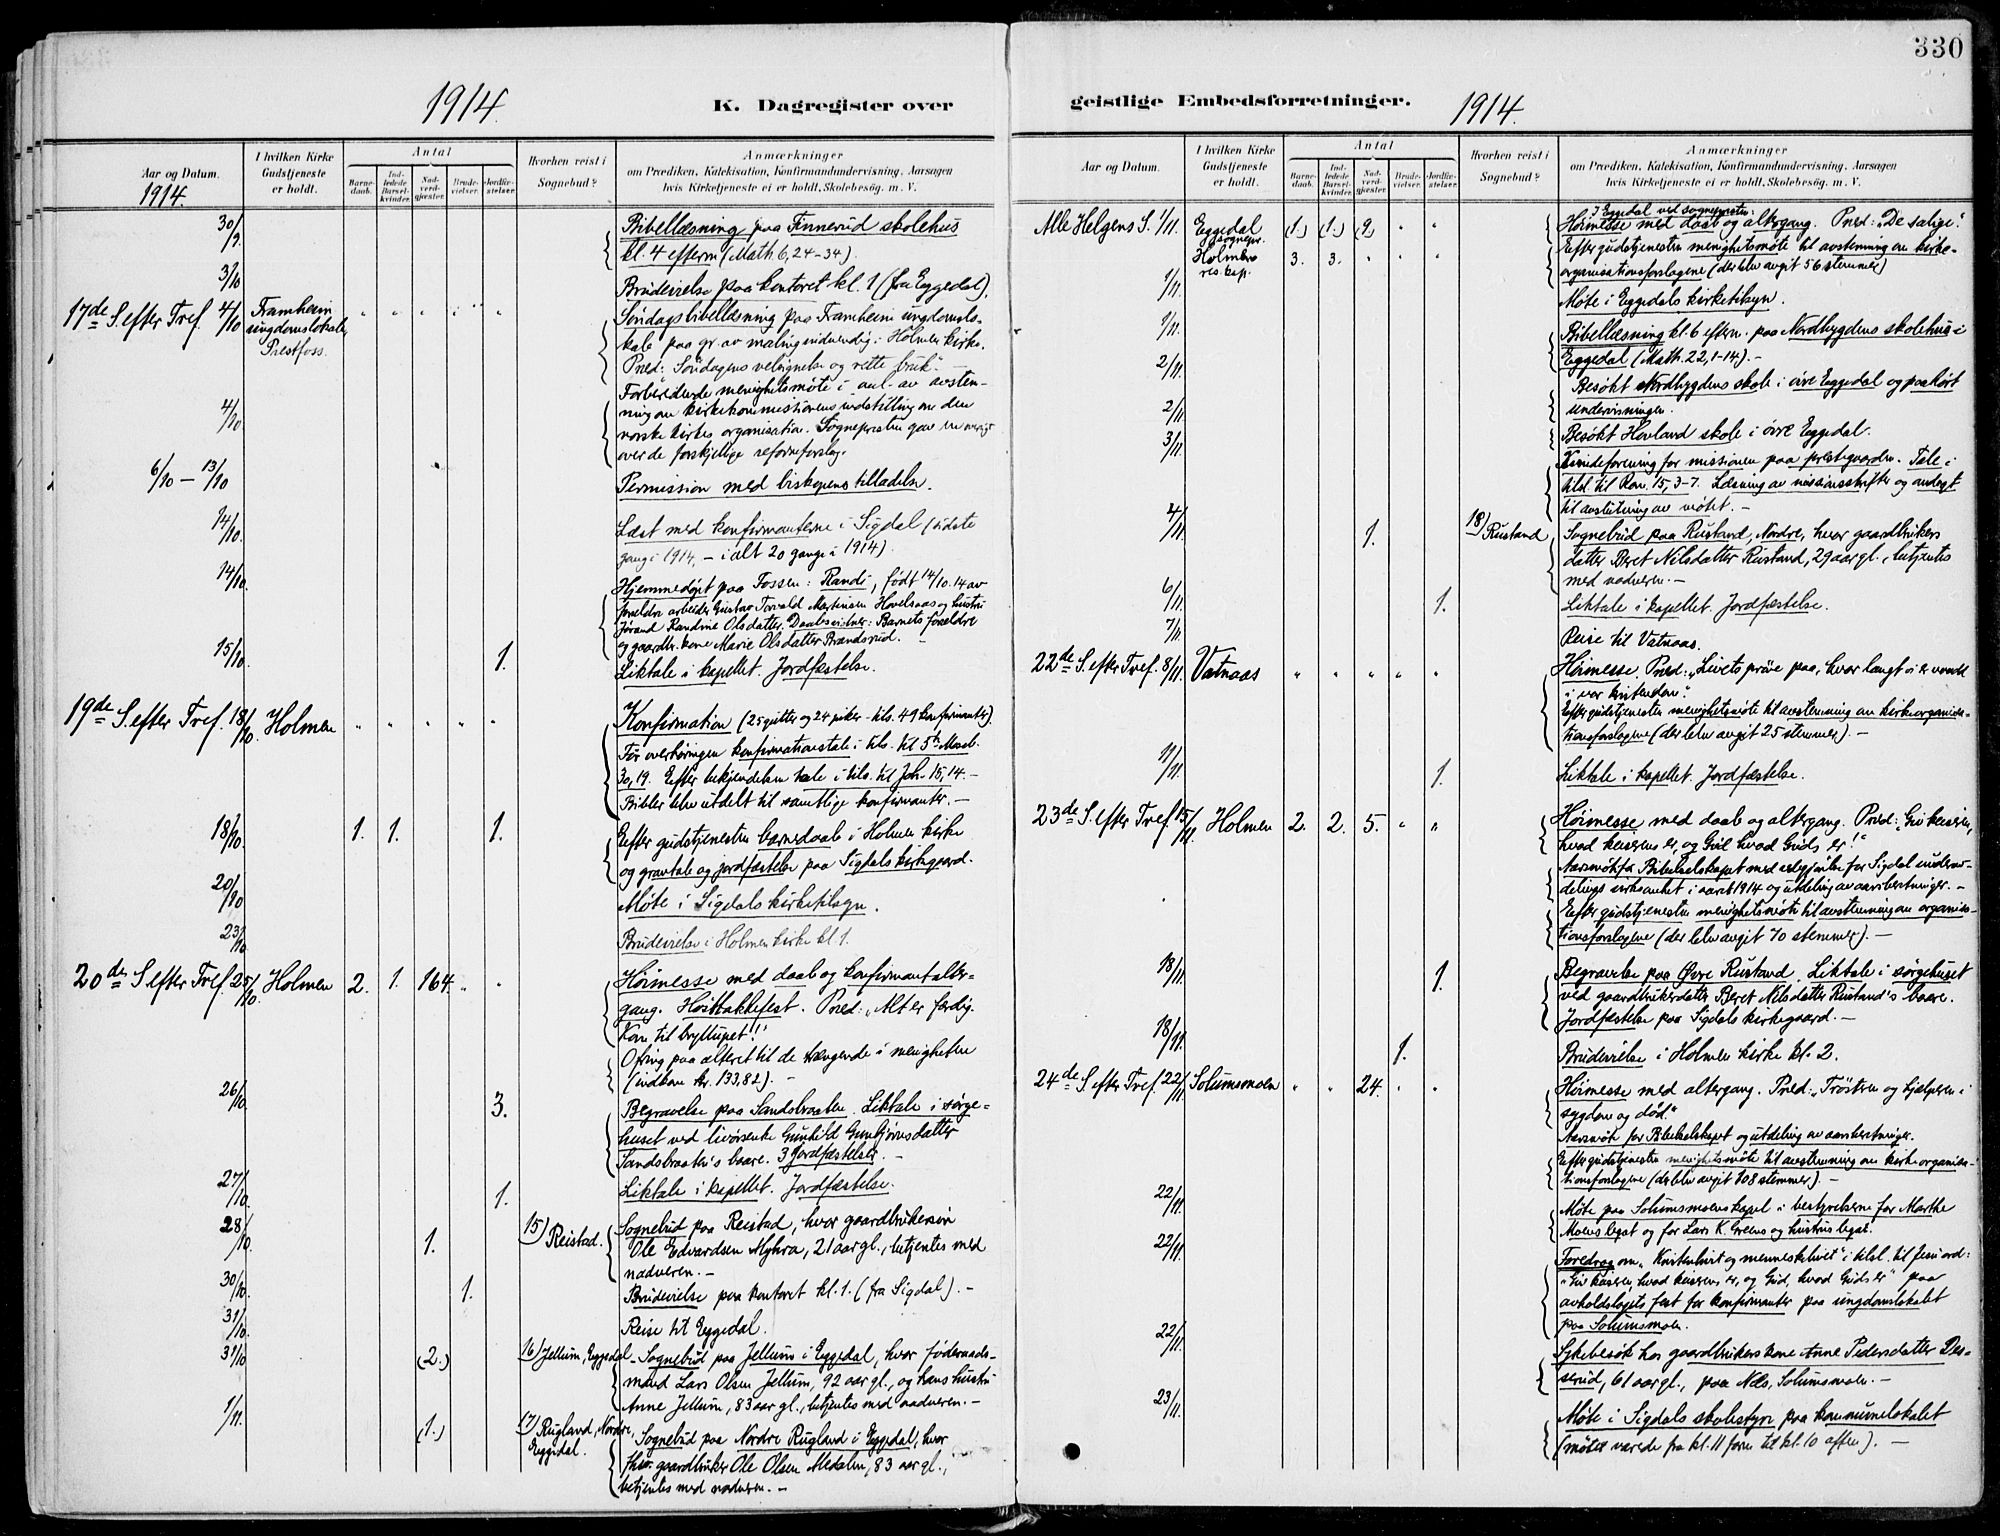 330
1914.
K. Dagregister over
Aar og Datum.
1914.
I hvilken Kirke Gudstjeneste er holdt.
Antal
Barnedaab.
Indledede Barselkvinder.
Nadverdgjæster.
Brudevielser.
Jordfæstelser.
Hvorhen reist i Sognebud?
Anmærkninger
om Prædiken, Katekisation, Konfirmandundervisning, Aarsagen
hvis Kirketjeneste ei er holdt, Skolebesøg. m. V.
30/9. Bibellæsning paa Finnerud skolehus
kl. 4 efterm (Math 6, 24-34).
3/10 Brudevielse paa kontoret kl. 1 (fra Eggedal).
17de S. efter Tref. 4/10 Framheim ungdomslokale, Prestfoss. Søndagsbibellæsning paa Framheim ungdomslo-
kale paa gr. av maling indvendig i Holmen kirke.
Præd: "Søndagens velsignelse og rette bruk."
4/10 Forberedende menighetsmøte i anl. av avstem-
ning om kirkekommissionens indstilling om den
norske kirkes organisation. Sognepresten gav en oversigt
over de forskjellige reformforslag.
6/10 - 13/10 Permission med biskopens tilladelse.
14/10. Læst med konfirmanterne i Sigdal (sidste
gang i 1914, - i alt 20 gange i 1914).
14/10. Hjemmedøpt paa Fossen: Randi, født 14/10.14 av
forældre arbeider Gustav Torvald Martinsen Hovelsaas og hustru
Jørand Randine Olsdatter. Daabsvidner: Barnets forældre
og gaardbr. kone Marie Olsdatter Brandsrud.
15/10 1. Liktale i kapellet. Jordfæstelse.
19de S. efter Tref. 18/10. Holmen Konfirmation (25 gutter og 24 piker - tils. 49 konfirmanter).
Før overhøringen konfirmationstale i tils. til 5te Mosb.
30,19. Efter bekjendelsen tale i tils. til Joh. 15,14. -
Bibler blev utdelt til samtlige konfirmanter. -
18/10. 1. 1. 1. Efter gudstjenesten barnedaab i Holmen kirke
og gravtale og jordfæstelse paa Sigdals kirkegaard.
20/10 Møte i Sigdals kirketilsyn.
23/10 Brudevielse i Holmen kirke kl. 1.
20de S. efter Tref. 25/10. Holmen 2. 1. 164. Høimesse med daab og konfirmantalter-
gang. Høsttakkefest. Præd: "Alt er færdig.
Kom til bryllupet!"
Ofring paa alteret til de trængende i menigheten
(indkom kr. 133,82). -
26/10. 3. Begravelse paa Sandsbraaten. Liktale i sørge-
huset ved livørsenke Gunhild Gunbjørnsdatter
Sandsbraaten's baare. 3 Jordfæstelser. -
27/10. 1. Liktale i kapellet. Jordfæstelse.
28/10. 1. 15) Reistad. Sognebud paa Reistad, hvor gaardbrukersøn
Ole Edvardsen Myhra, 21 aar gl., betjentes med
nadveren. -
30/10. 1. Brudevielse paa kontoret kl. 1. (fra Sigdal). -
31/10. Reise til Eggedal.
31/10 (2.) 16) Jellum, Eggedal - Sognebud paa Jellum i Eggedal, hvor føderaads-
mand Lars Olsen Jellum, 92 aar gl., og hans hustru
Anne Jellum, 83 aar gl., betjentes med nadveren. -
1/11. (1.) 17) Rugland, Nordre, Eggedal. Sognebud paa Nordre Rugland i Eggedal, hvor
fhv. gaardbruker Ole Olsen Medalen, 83 aar gl.,
betjentes med nadveren. -
geistlige Embedsforretninger.
1914.
Aar og Datum.
I hvilken Kirke Gudstjeneste er holdt.
Antal
Barnedaab.
Indledede Barselkvinder.
Nadverdgjæster.
Brudevielser.
Jordfæstelser.
Hvorhen reist i Sognebud?
Anmærkninger
om Prædiken, Katekisation, Konfirmandundervisning, Aarsagen
hvis Kirketjeneste ei er holdt, Skolebesøg. m. V.
Alle Helgens S. 1/11. Eggedal sognepr. (1.) (1.) (2. I Eggedal ved sognepresten:
Holmen res. kap. 3. 3. Høimesse med daab og altergang. Præd: "De salige".
Efter gudstjenesten menighetsmøte til avstemning om kirke-
organisationsforslagene (der blev avgit 56 stemmer)
1/11. Møte i Eggedals kirketilsyn.
1/11. Bibellæsning kl. 6 efterm. paa Nordbygdens skolehus i
Eggedal (Math. 22, 1-14). -
2/11. Besøkt Nordbygdens skole i øvre Eggedal og paahørt
undervisningen.
2/11. Besøkt Hovland skole i øvre Eggedal.
3/11. Kvindeforening for missionen paa prestegaarden. Tale i
tilsl. til Rom. 15, 3-7. Læsning av missionsskrifter og andagt
til avslutning av møtet. -
4/11. 1. 18) Rustand Sognebud paa Rustand, Nordre, hvor gaardbrukers
datter Beret Nilsdatter Rustand, 29 aar gl., betjentes
med nadveren. -
6/11. 1. Liktale i kapellet. Jordfæstelse.
7/11. Reise til Vatnaas.
22de S. efter Tref. 8/11. Vatnaas Høimesse. Præd: "Livets prøve paa, hvor langt vi er vandt
i vor kristendom".
Efter gudstjenesten menighetsmøte til avstemning om kirkeorganisa-
tionsforslagene (der blev avgit 25 stemmer). -
11/11. 1. Liktale i kapellet. Jordfæstelse.
23de S. efter Tref. 15/11. Holmen 2. 2. 5. Høimesse med daab og altergang. Præd: "Giv keiseren,
hvad keiserens er, og Gud hvad Guds er!"
Aarsmøte for Bibelselskapet med redegjørelse for Sigdal underav-
delings virksomhet i aaret 1914 og utdeling av aarsberetninger. -
Efter gudstjenesten menighetsmøte til avstemning om organisa-
tionsforslagene (der blev avgit 70 stemmer). -
18/11. 1. Begravelse paa Øvre Rustand. Liktale i sørgehuset
ved gaardbrukerdatter Beret Nilsdatter Rustand's baare.
Jordfæstelse paa Sigdals kirkegaard. -
18/11. 1. Brudevielse i Holmen kirke kl. 2.
24de S. efter Tref. 22/11. Solumsmoen 24. Høimesse med altergang. Præd: "Trøsten og hjælperen i
sygdom og død."
Aarsmøte for Bibelselskapet og utdeling av aarsberetninger.
Efter gudstjenesten menighetsmøte til avstemning om kirkeorganisa-
tionsforslagene (der blev avgit 108 stemmer). -
22/11. Møte paa Solumsmoens kapel i bestyrelserne for Marthe
Moens legat og for Lars K. Greens og hustrus legat.
22/11. Foredrag om "Kristenlivet og menneskelivet" i tilsl. til Jesu ord:
"Giv keiseren, hvad keiserens er, og Gud, hvad Guds er" paa
avholdslagets fest for konfirmanter paa ungdomslokalet
paa Solumsmoen.
22/11. Sykebesøk hos gaardbrukerskone Anne Pedersdatter Des-
serud, 61 aar gl., paa Næs, Solumsmoen. -
23/11. Møte i Sigdals skolestyre paa kommunelokalet
(møtet varede fra kl. 11 form til kl. 10 aften). -